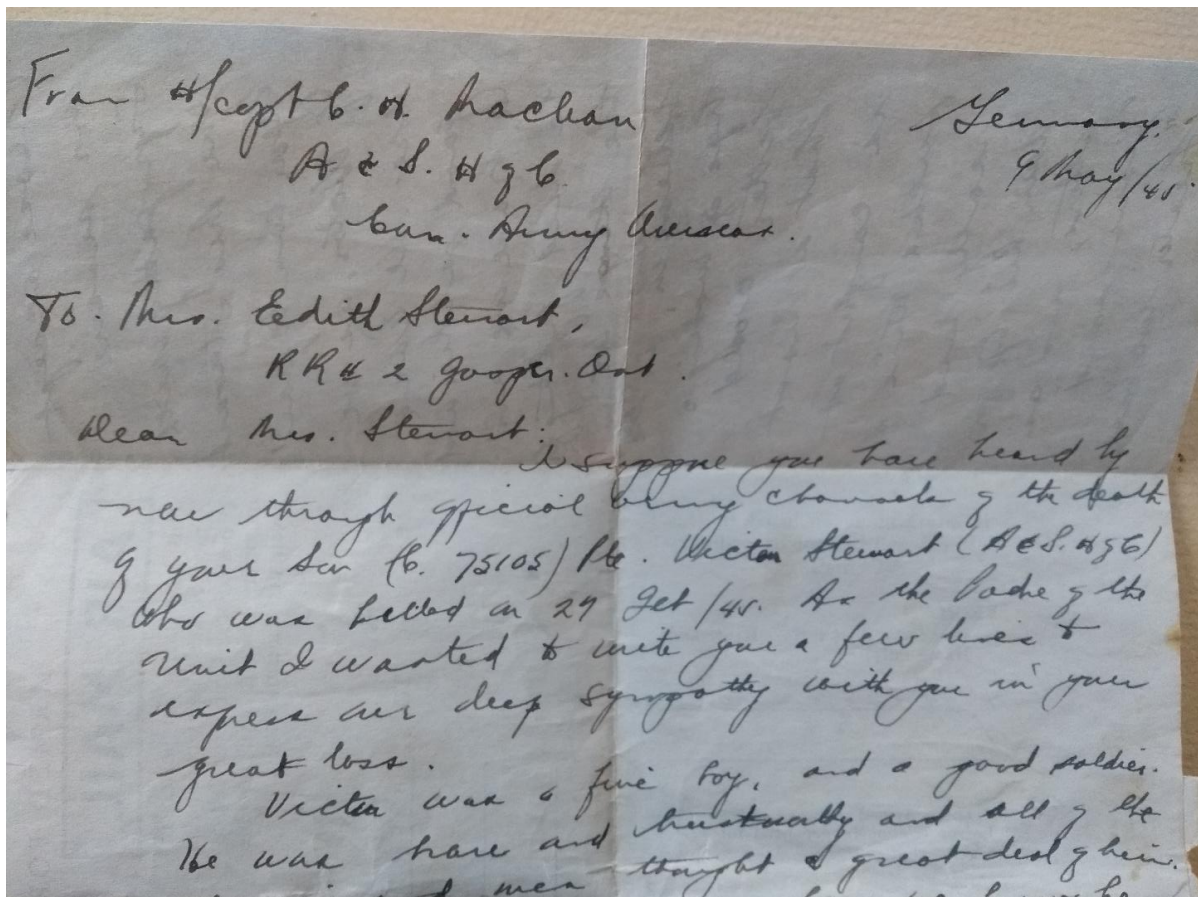 From H/Capt C. H. Maclean
A & S. H of C
Can. Army Overseas.
Germany.
9 May/45.
To. Mrs. Edith Stewart,
RR # 2 Ont.
Dear Mrs. Stewart:
I suppose you have heard by
now through official army channels of the death
of your son (C. 75105) Pte. Victor Stewart (A & S. H of C)
who was killed on 27 Feb/45. As the Padre of the
unit I wanted to write you a few lines to
express our deep sympathy with you in your
great loss.
Victor was a fine boy, and a good soldier.
He was brave and trustworthy and all of the
men thought a great deal of him.